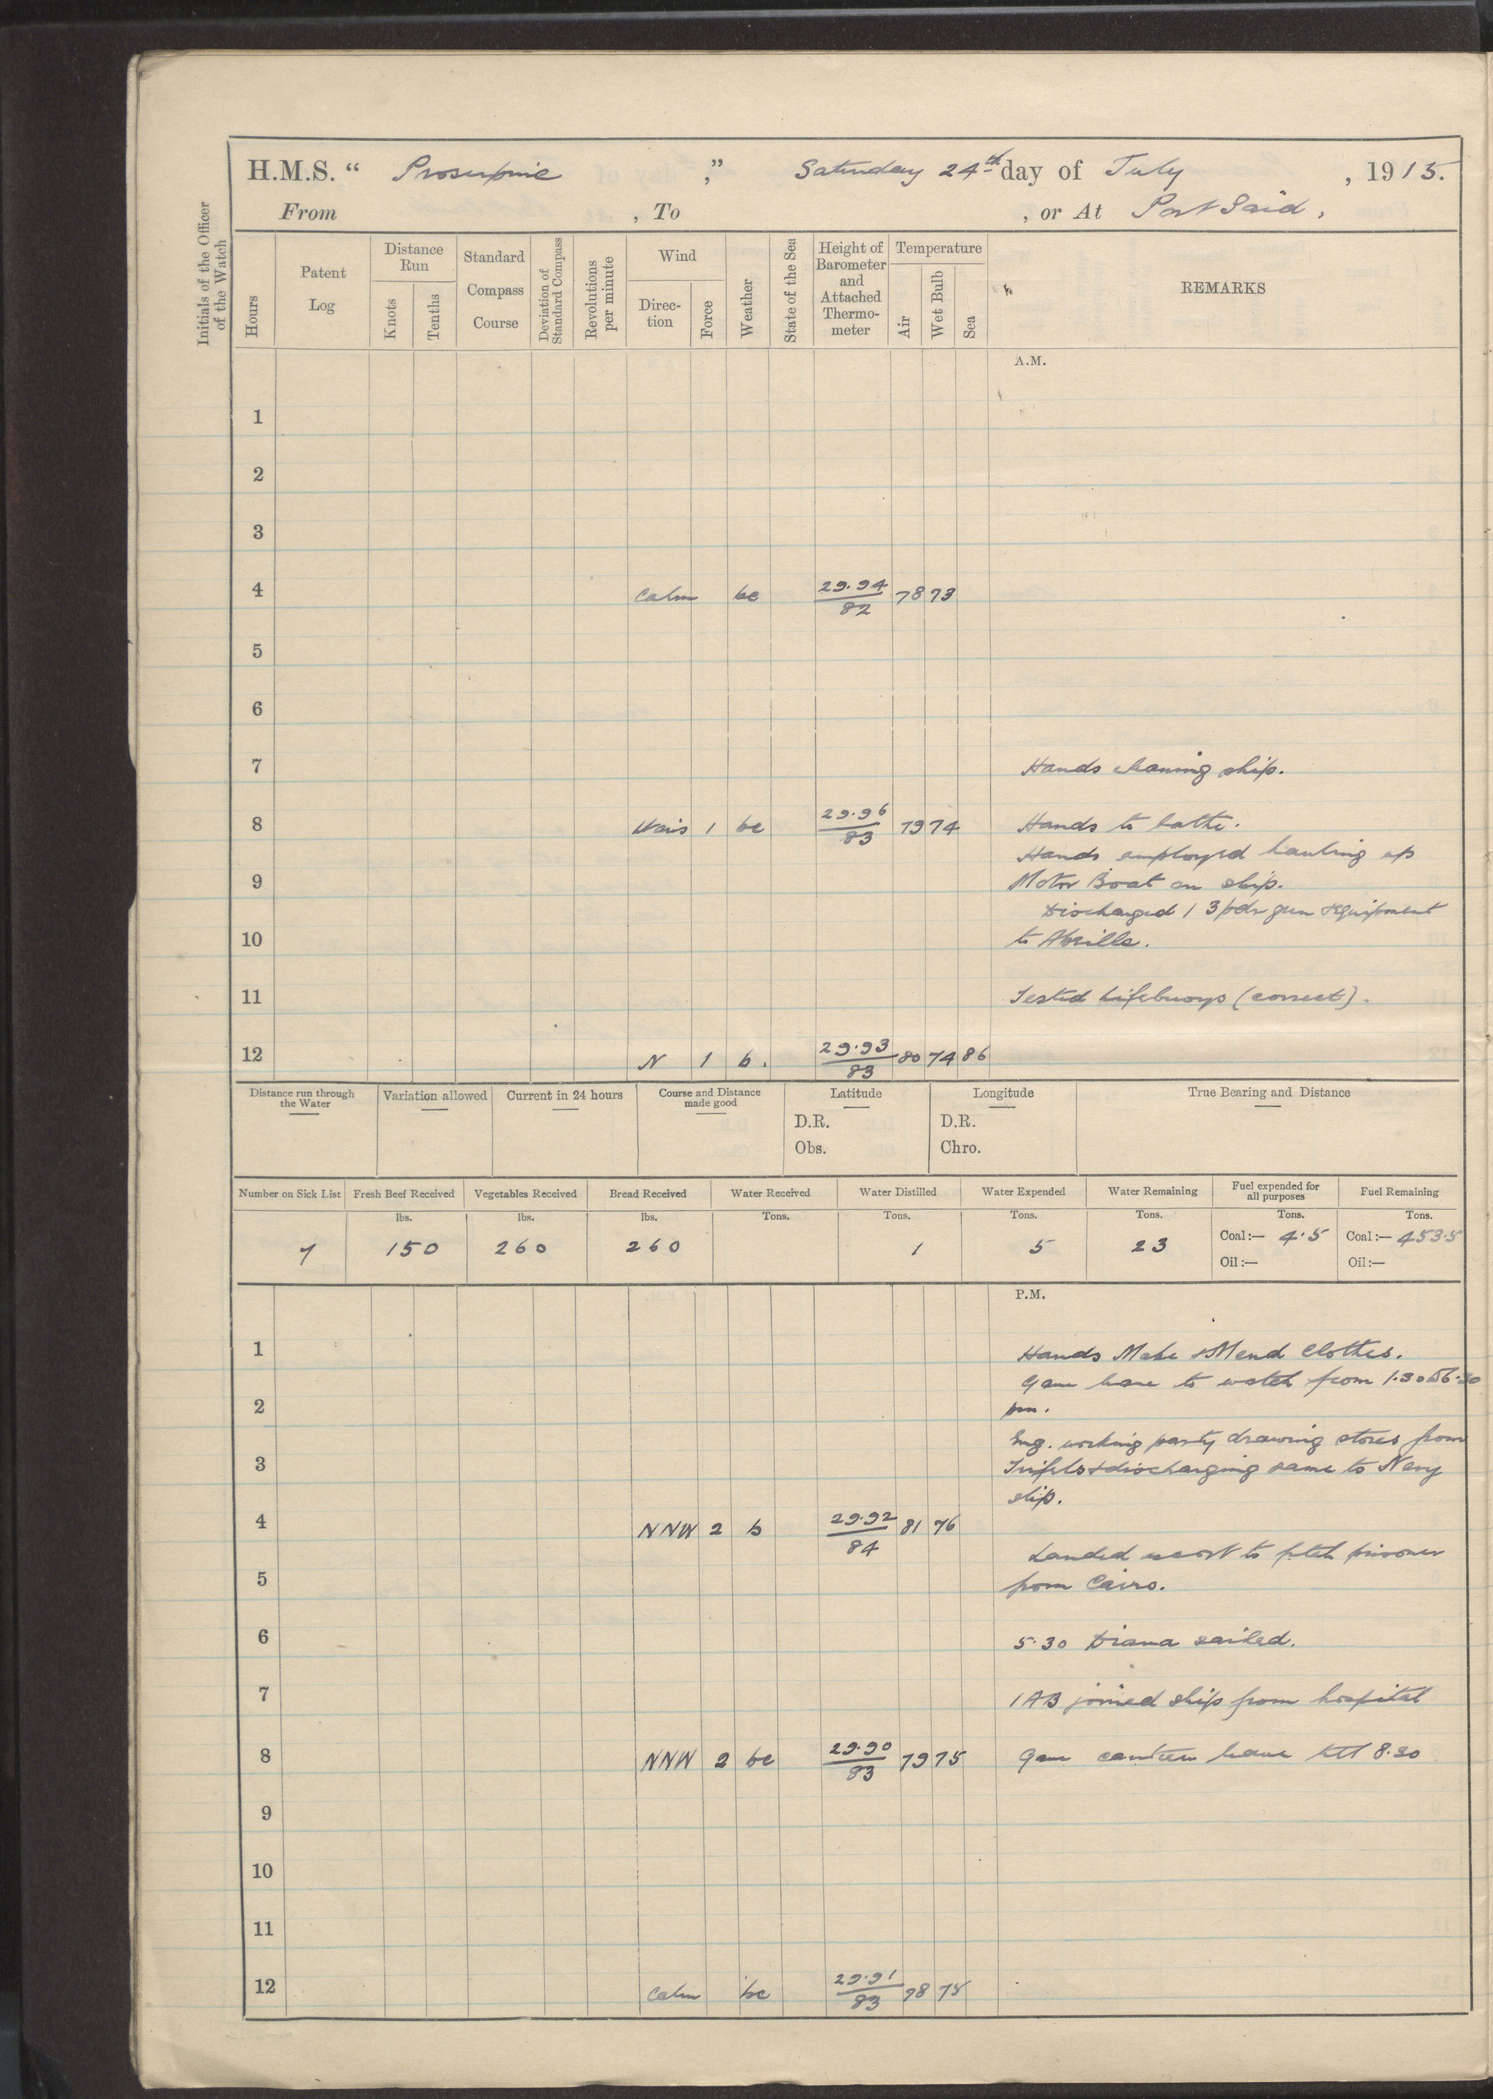 H.M.S. “ Proserpine ,” Saturday 24th day of July , 1915.
From , To , or At Port Said,
Initials of the Officer of the Watch
Hours
Patent Log
Distance Run
Knots
Tenths
Standard Compass Course
Deviation of Standard Compass
Revolutions per minute
Wind
Direc-tion
Force
Weather
State of the Sea
Height of Barometer and Attached Thermo-meter
Temperature
Air
Wet Bulb
Sea
REMARKS
A.M.
1
2
3
4 Calm bc 29.94/82 78 73
5
6
7 Hands cleaning ship.
8 1 bc 29.96/83 79 74 Hands to bathe.
Hands employed hauling up
9 Motor Boat on slip.
Discharged 1 3pdr gun & equipment
10 to
11 Tested Lifebuoys (correct).
12 N 1 b. 29.93/83 80 74 86
Distance run through the Water
Variation allowed
Current in 24 hours
Course and Distance made good
Latitude
D.R.
Obs.
Longitude
D.R.
Chro.
True Bearing and Distance
Number on Sick List Fresh Beef Received Vegetables Received Bread Received Water Received Water Distilled Water Expended Water Remaining Fuel expended for all purposes Fuel Remaining
lbs. lbs. lbs. Tons. Tons. Tons. Tons. Tons. Tons.
7 150 260 260 1 5 23 Coal:— 4.5 Coal:— 453.5
Oil:— Oil:—
P.M.
1 Hands Make & Mend Clothes.
Gave leave to watch from 1.30 to 6.30
2 pm.
Eng. working party drawing stores from
3 & discharging same to Navy
ship.
4 NNW 2 b 29.92/84 81 76
Landed escort to fetch prisoner
5 from Cairo.
6 5.30 Diana sailed.
7 1 AB joined ship from hospital
8 NNW 2 bc 29.90/83 79 75 Gave canteen leave till 8.30
9
10
11
12 Calm bc 29.91/83 78 75